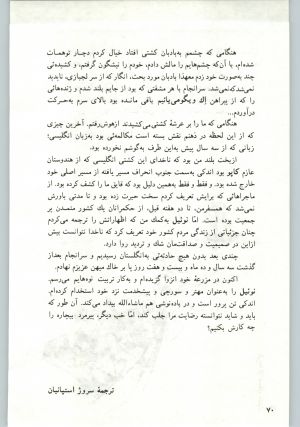 هنگامی که چشمم به‌بادبان کشتی افتاد خیال کردم دچار توهمات
شده‌ام، با آن‌که چشم‌هایم را مالش دادم، خودم را نیشگون گرفتم، و کشیده‌ئی
چند به‌صورت خود زدم معهذا بادبان مورد بحث، انگار که از سر لجبازی، ناپدید
نمی‌شد که نمی‌شد. سرانجام با هر مشقتی که بود از جایم بلند شدم و زنده‌هائی
را که از پیراهن باقی مانده بود بالای سرم به‌حرکت
درآوردم...
هنگامی که ما را بر عرشهٔ کشتی می‌کشیدند از هوش رفتم. آخرین چیزی
که از این لحظه در ذهنم نقش بسته است مکالمه‌ئی بود به‌زبان انگلیسی؛
زبانی که از سه سال پیش به‌این طرف به‌گوشم نخورده بود.
ازبخت بلند من بود که ناخدای این کشتی انگلیسی که از هندوستان
عازم کاپر بود اندکی به‌سمت جنوب انحراف مسیر یافته از مسیر اصلی خود
خارج شده بود. و فقط و فقط به‌همین دلیل بود که قایق ما را کشف کرده بود. از
ماجراهائی که برایش تعریف کردم سخت حیرت زده بود و تا مدتی باورش
نمی‌شد که همسفرمن، تا دو هفته قبل، از حکمرانان یک کشور متمدن پر
جمعیت بوده است. اما توئیل به‌کمک من که اظهاراتش را ترجمه می‌کردم
چنان جزئیاتی از زندگی مردم کشور خود تعریف کرد که ناخدا نتوانست بیش
ازاین در صمیمیت و صداقت‌مان شک و تردید روا دارد.
چندی بعد بدون هیچ حادثه‌ئی به‌انگلستان رسیدیم و سرانجام بعداز
گذشت سه سال و ده ماه و بیست و هفت روز پا بر خاک میهن عزیزم نهادم.
اکنون در مزرعهٔ خود انزوا گزیده‌ام و به‌کار تربیت نوه‌هایم می‌رسم.
توئیل را به‌عنوان مهتر و سورچی و پیشخدمت نزد خود استخدام کرده‌ام.
اندکی تن پرور است و در باده‌نوشی هم ماشاءالله بیداد می‌کند. آن طور که
باید و شاید نتوانسته رضایت مرا جلب کند، اما خب دیگر، پیرمرد بیچاره را
چه کارش بکنیم؟
ترجمهٔ سروژ استپانیان
۷۰